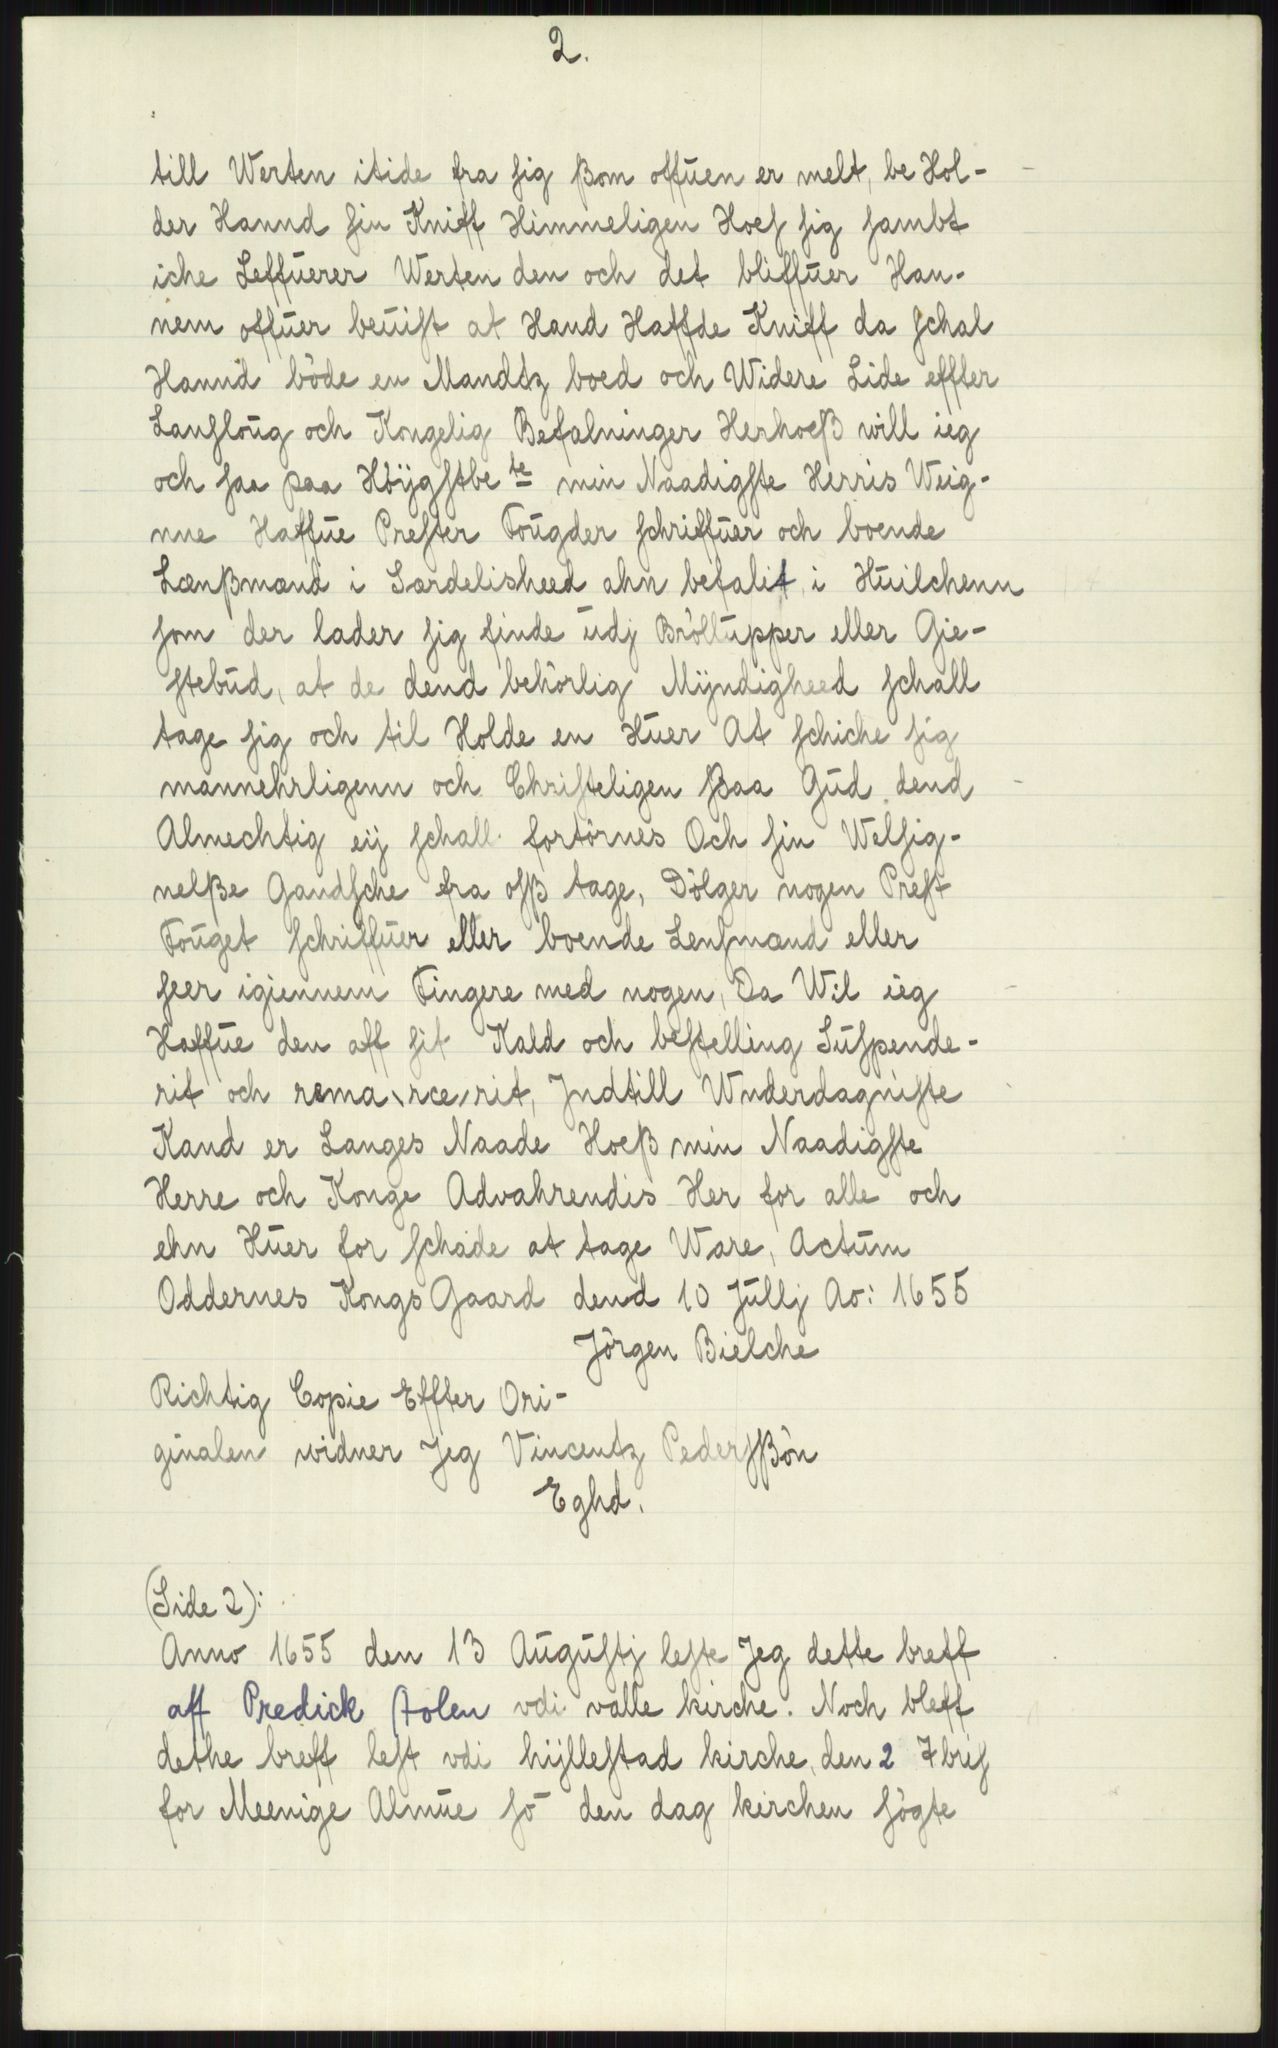 2.
till Werten itide fra sig ßom offuen er melt, be Hol-
der Hannd sin Kniff Himmeligen Hoes sig sambt
iche Leffuerer Werten den och det bliffuer Han-
nem offuer beuist at Hand Haffde Kniff da schal
Hannd böde en Mandtz boed och Widere Lide effter
Lansloug och Kongelig Befalninger Herhoeß will ieg
och saa paa Höÿgstbe te min Naadigste Herris Weig-
nne Haffue Prester Fougder schriffuer och boende
Lænßmand i Særdelisheed ahn befalit, i Huilchenn
som der lader sig finde udj Bröllupper eller Gie-
stebud, at de dend behörlig Mÿndigheed schall
tage sig och til Holde en Huer At schiche sig
mannehrligenn och Christeligen ßaa Gud dend
Almechtig eij schall fortörnes Och sin Welsig-
nelße Gandsche fra osß tage, Dölger nogen Prest
Fouget schriffuer eller boende Lensmand eller
seer igiennem Fingere med nogen, Da Wil ieg
Haffue den aff sit Kald och bestelling Suspende-
rit och rema\rce/rit, Jndtill Wnderdagniste
Kand er Langes Naade Hoeß min Naadigste
Herre och Konge Advahrendis Her for alle och
ehn Huer for schade at tage Ware, Actum
Oddernes KongsGaard dend 10 Jullj Ao: 1655
Jörgen Bielche
Richtig Copie Effter Ori-
ginalen widner Jeg Vincentz Pedersßön
Eghd.
(Side 2):
Anno 1655 den 13 Augustj leste Jeg dette breff
aff Predick stolen vdi valle kirche. Noch bleff
dethe breff lest vdi hÿllestad kirche, den 2 7bris
for Meenige Almue som den dag kirchen sögte